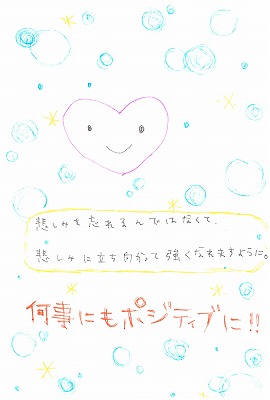 悲しみを忘れるんではなくて、
悲しみに立ち向かって強くなれますように。
何事にもポジティブに!!